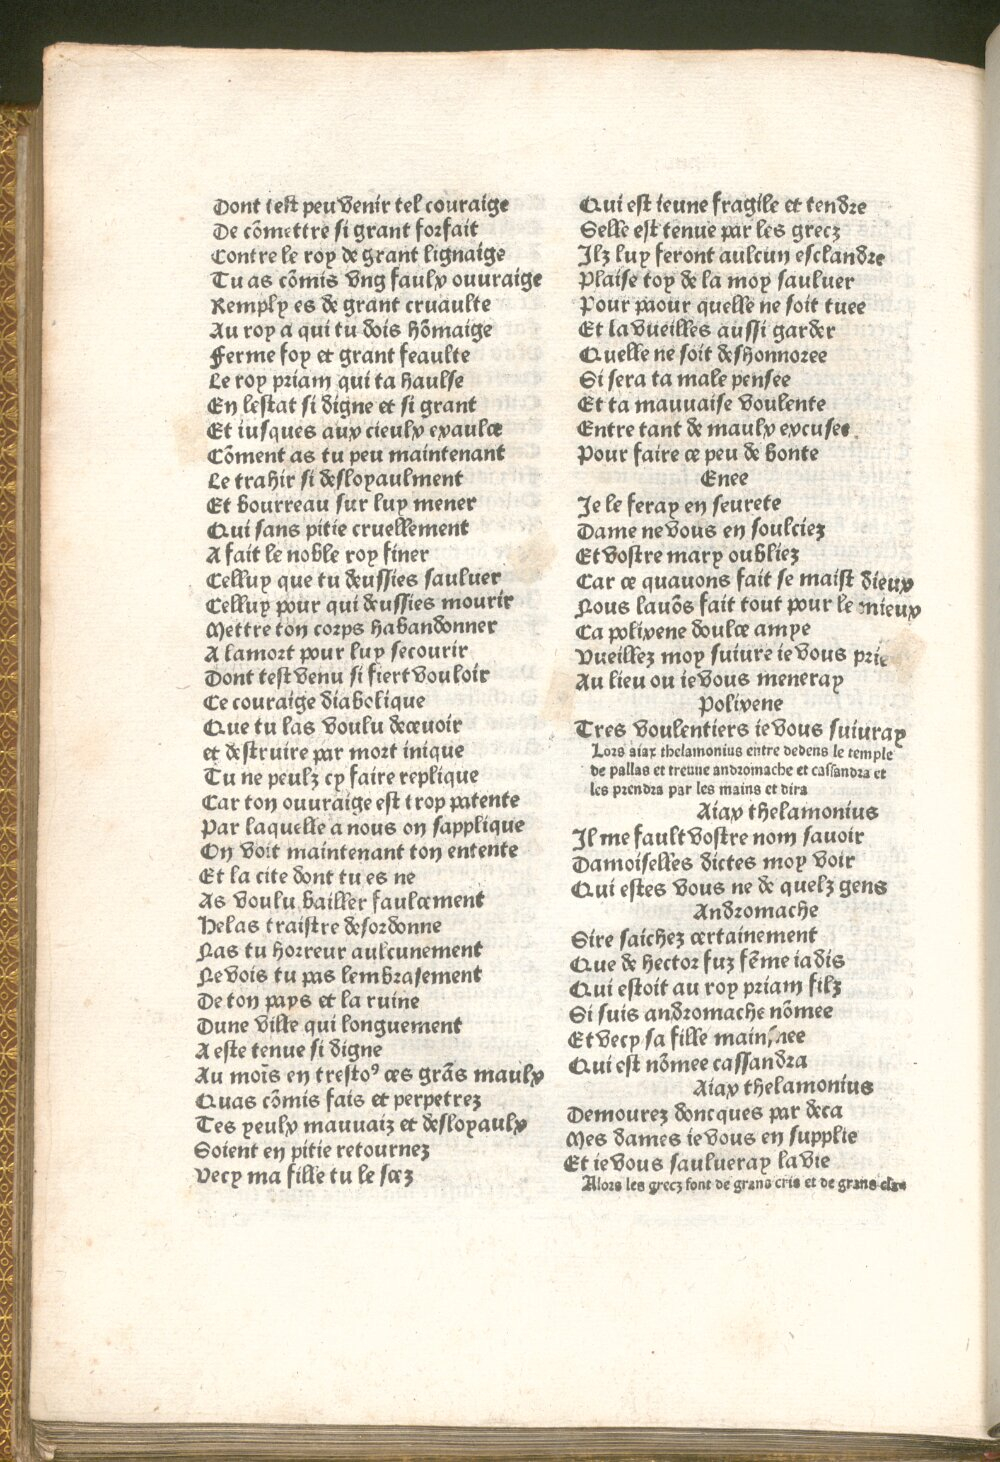 Dont test peu venir tel couraige
De cõmettre si grant forfait
Contre le roy de grant lignaige
Tu as cõmis vng faulx ouuraige
Remply es de grant cruaulte
Au roy a qui tu dois hõmaige
Ferme foy et grant feaulte
Le roy priam qui ta haulse
En lestat si digne et si grant
Et iusques aux cieulx exaulce
Cõment as tu peu maintenant
Le trahir si desloyaulment
Et bourreau sur luy mener
Qui sans pitie cruellement
A fait le noble roy finer
Celluy que tu deussies sauluer
Celluy pour qui deussies mourir
Mettre ton corps habandonner
A lamort pour luy secourir
Dont test venu si fiert vouloir
Ce couraige diabolique
Que tu las voulu deceuoir
et destruire par mort inique
Tu ne peulz cy faire replique
Car ton ouuraige est trop patente
Par laquelle a nous on sapplique
On voit maintenant ton entente
Et la cite dont tu es ne
As voulu bailler faulcement
Helas traistre desordonne
Nas tu horreur aulcunement
Ne vois tu pas lembrasement
De ton pays et la ruine
Dune ville qui longuement
A este tenue si digne
Au moĩs en trestoꝰ ces grãs maulx
Quas cõmis fais et perpetrez
Tes yeulx mauuaiz et desloyaulx
Soient en pitie retournez
Vecy ma fille tu le scez
Qui est ieune fragile et tendre
Selle est tenue par les grecz
Ilz luy feront aulcun esclandre
Plaise toy de la moy sauluer
Pour paour quelle ne soit tuee
Et la vueilles aussi garder
Quelle ne soit deshonnoree
Si sera ta male pensee
Et ta mauuaise voulente
Entre tant de maulx excusee
Pour faire ce peu de bonte
Enee
Je le feray en seurete
Dame ne vous en soulciez
Et vostre mary oubliez
Car ce quauons fait se maist dieux
Nous lauõs fait tout pour le mieux
Ca polixene doulce amye
Vueillez moy suiure ie vous prie
Au lieu ou ie vous meneray
Polixene
Tres voulentiers ie vous suiuray
Lors aiax thelamonius entre dedens le temple
de pallas et treuue andromache et cassandra et
les prendra par les mains et dira
Aiax thelamonius
Il me fault vostre nom sauoir
Damoiselles dictes moy voir
Qui estes vous ne de quelz gens
Andromache
Sire saichez certainement
Que de hector fuz fẽme iadis
Qui estoit au roy priam filz
Si suis andromache nõmee
Et vecy sa fille mainsnee
Qui est nõmee cassandra
Aiax thelamonius
Demourez doncques par deca
Mes dames ie vous en supplie
Et ie vous saulueray la vie
Alors les grecz font de grans cris et de grans